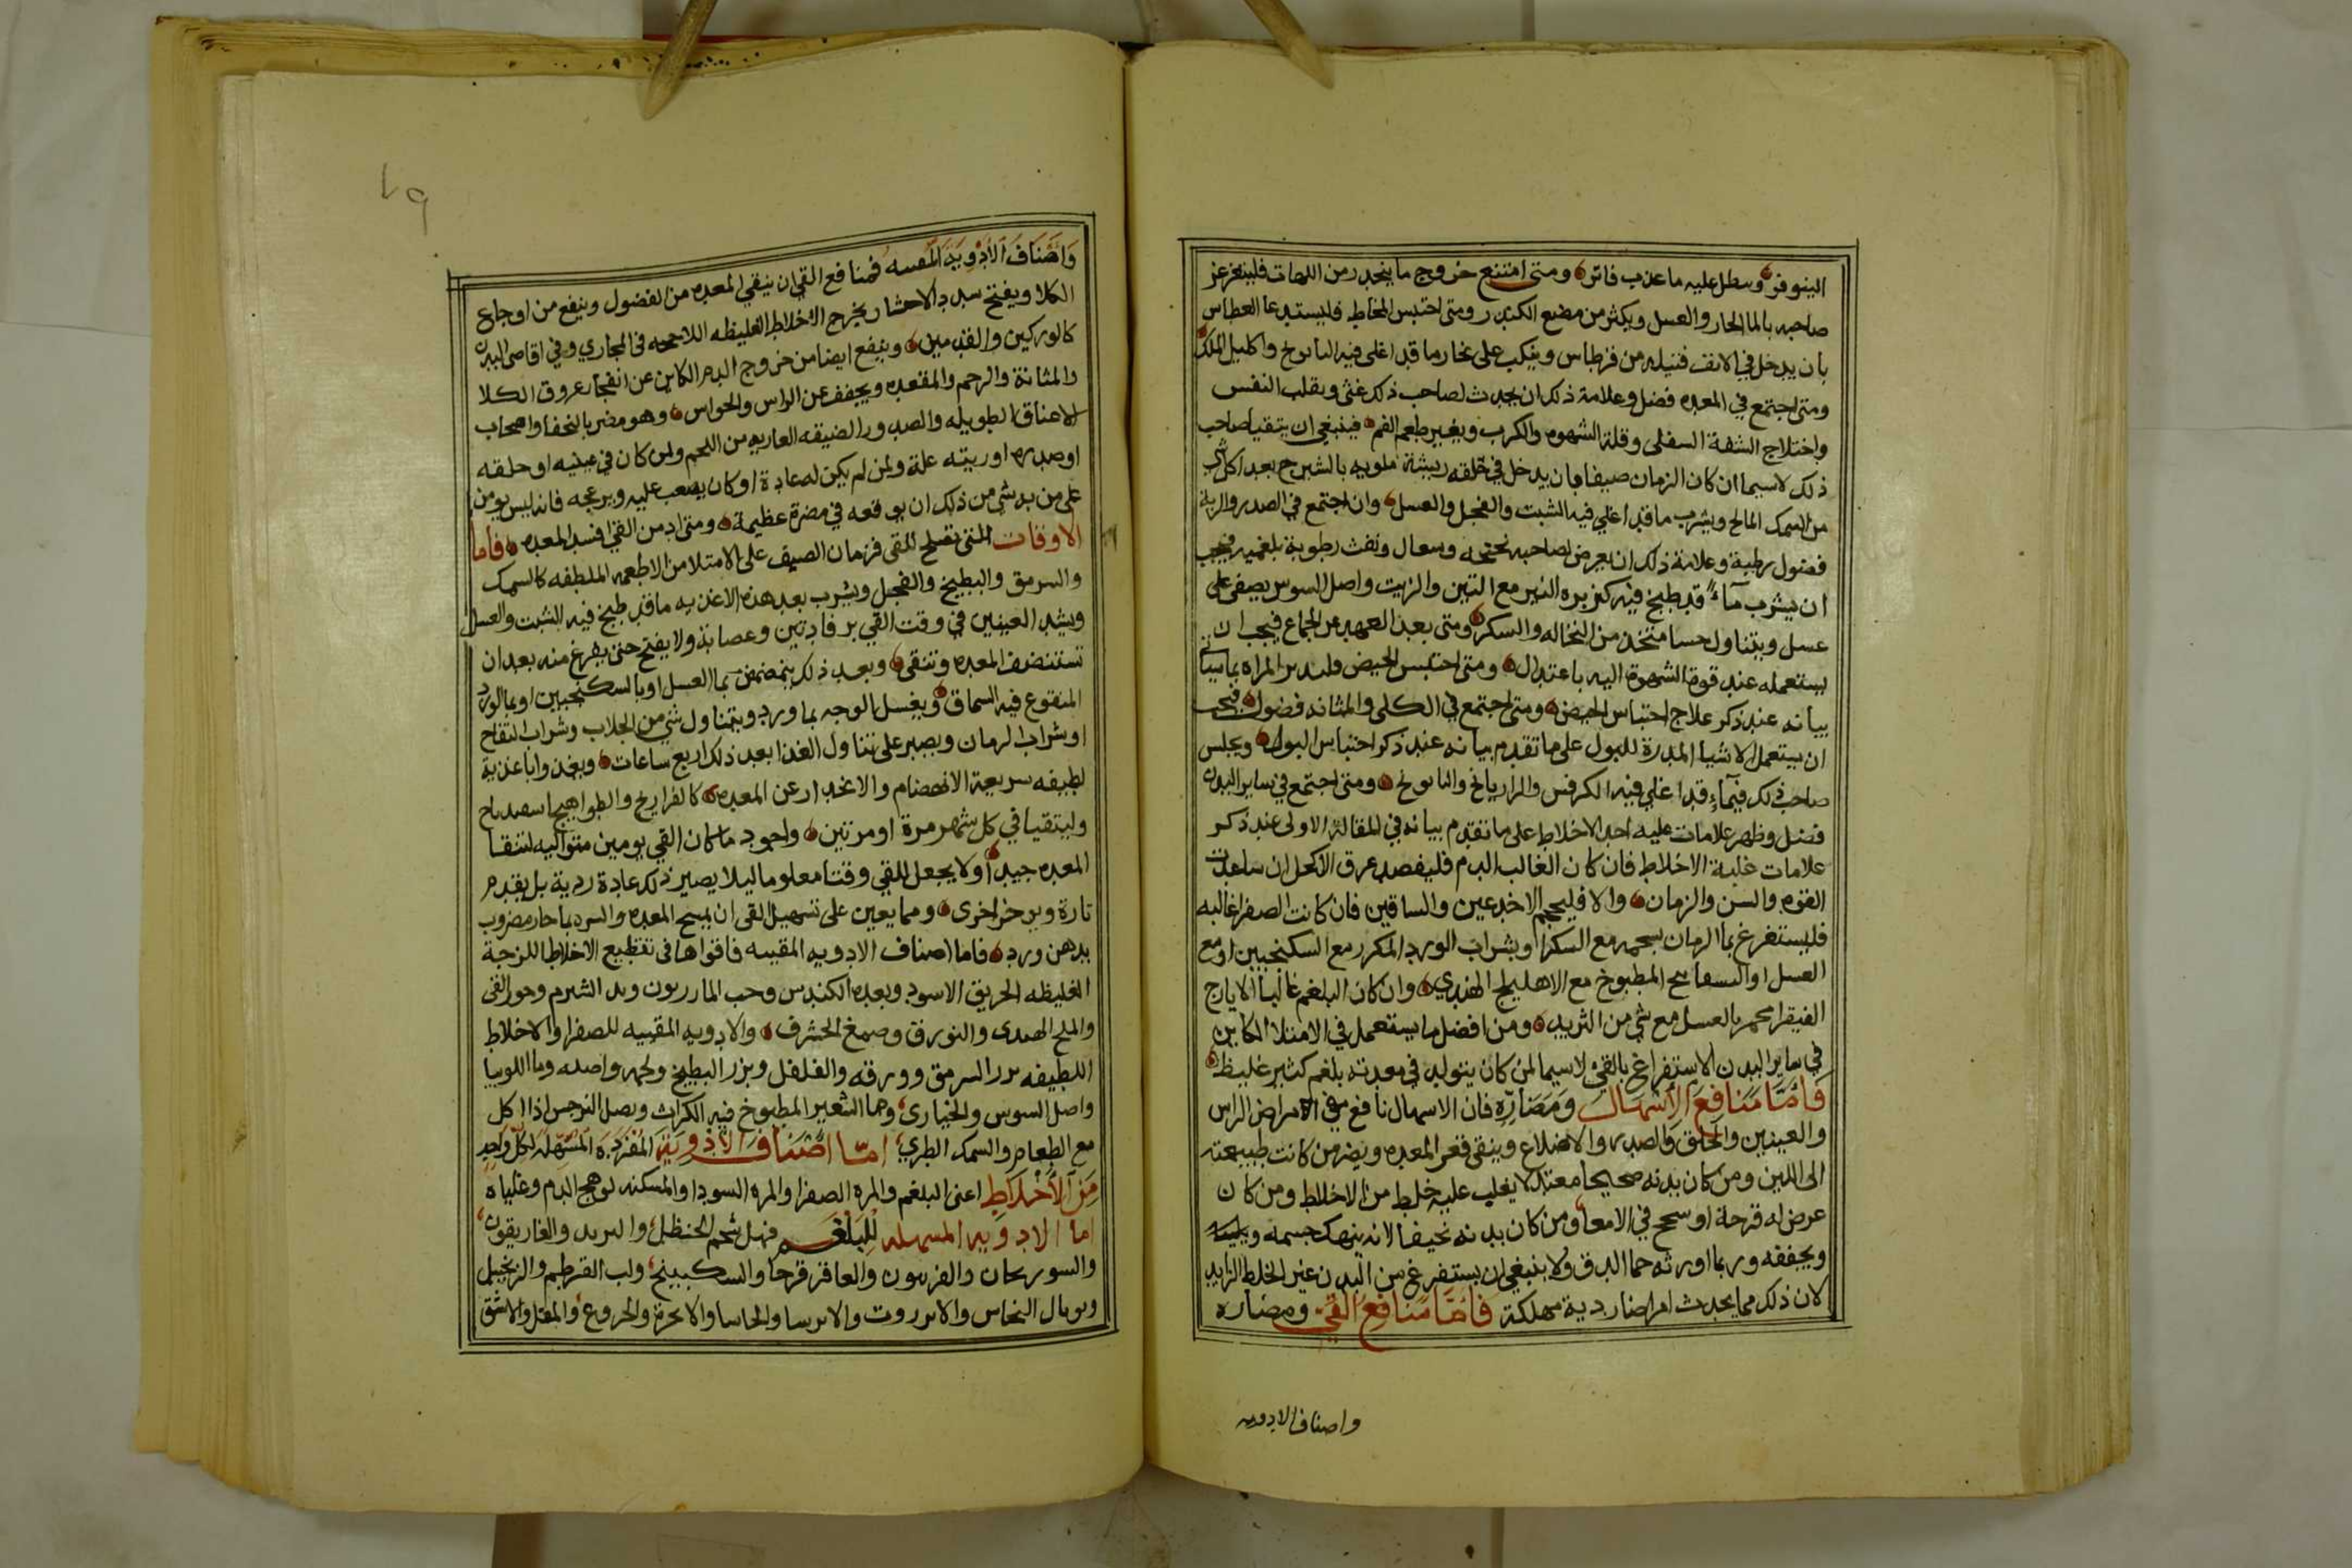 النيوفر وسطل عليه ما عذب فاتر ومتى امتنع خروج ما ينحدر من اللهات فليتغرغر
صاحبه بالما الحار والعسل ويكثر من مضع الكندر ومتى احتبس المخاط فليستدعا العطاس
بان يدخل في الانف فتيله من قرطاس وينكب على بخار ما قد اغلى فيه البابونج واكليل الملك
ومتى اجتمع في المعده فضل وعلامة ذلك ان يحدث لصاحب ذلك غثى وبقلب النفس
واختلاج الشفة السفلى وقلة الشهوه والكرب وبغير طعم الفم فينبغي ان يتقيا صاحب
ذلك لاسيما ان كان الزمان صيفا بان يدخل في حلقه ريشة ملويه بالشيرج بعد اكل شي
من السمك المالح ويشرب ما قد اغلي فيه الشبت والفجل والعسل وان اجتمع في الصدر والرية
فضول رطبة وعلامة ذلك ان يعرض لصاحبه نحنحه وسعال ونفث رطوبة بلغميه فيجب
ان يشرب مآء قد طبخ فيه كزبره البير مع التين والزيت واصل السوس يصفى على
عسل ويتناول حسا متخذ من النخاله والسكر ومتى بعد العهد من الجماع فيجب ان
يستعمله عند قوة الشهوة اليه باعتدال ومتى احتبس الحيض فلتدبر المراه بما سياتي
بيانه عند ذكر علاج احتباس الحيض ومتى اجتمع في الكلى والمثانه فضول فيجب
ان يستعمل الاشيا المدرة للبول على ما تقدم بيانه عند ذكر احتباس البول ويجلس
صاحب ذلك في مآء قد اغلي فيه الكرفس والرازيانج والبابونج ومتى اجتمع في ساير البدن
فضل وظهر علامات عليه احد الاخلاط على ما تقدم بيانه في المقالة الاولى عند ذكر
علامات غلبة الاخلاط فان كان الغالب الدم فليفصد عرق الاكحل ان ساعدت
القوه والسن والزمان والا فليحجم الاخدعين والساقين فان كانت الصفرا غالبه
فليستفرغ بما الرمان بسحمه مع السكر او بشراب الورد المكرر مع السكنجبين او مع
العسل او البسفايج المطبوخ مع الاهليلج الهندي وان كان البلغم غالبا الايارج
الفيقرا محمر بالعسل مع شي من التربد ومن افضل ما يستعمل في الامتلا الكاين
في ساير البدن الاستفراغ بالقي لاسيما لمن كان يتولد في معدته بلغم كثير غليظ
فَامّا مَنَافِع الاسْهَال وَمَضَارّه فان الاسهال نافع في الامراض الراس
والعينين والحلق والصدر والاضلاع وينقى قعر المعده ويضر من كانت طبيعته
الى اللين ومن كان بدنه صحيحا معتدلا يغلب عليه خلط من الاخلاط ومن كان
عرض له قرحة او سحج في الامعا ومن كان بدنه نحيفا لانه ينهك جسمه
ويجففه وربما اورثه حما الدق ولا ينبغي ان يستفرغ من البدن غير الخلط الزايد
لان ذلك مما يحدث امراضا ردية مهلكة فَامّا مَنَافِع القَيّ ومضاره
واصناف الادويه
٧٩
وَاصْنَاف الأدْوِيَة المقييه فمنافع القي ان ينقي المعده من الفضول وينفع من اوجاع
الكلا ويفتح سدد الاحشا ويخرج الاخلاط الغليظه اللاحجه في المجاري وفي اقاصي البدن
كالوركين والقدمين وينفع ايضا من خروج الدم الكاين عن انفجار عروق الكلا
والمثانة والرحم والمقعده ويجفف عن الراس والحواس وهو مضر بالنحفا واصحاب
الاعناق الطويله والصدور الضيقه العاريه من اللحم ولمن كان في عينيه او حلقه
او صدره او ريته علة ولمن لم يكن له عادة او كان يصعب عليه ويزعجه فانه ليس يومن
على من به شي من ذلك ان يوقعه في مضرة عظيمة ومتى ادمن القي افسد المعده فاما
الاوقات التي تصلح للقي فزمان الصيف على الامتلا من الاطعمه الملطفه كالسمك
والسرمق والبطيخ والفجل ويشرب بعد هذه الاغذيه ما قد طبخ فيه الشبت والعسل
ويشد العينين في وقت القي برفادتين وعصابة ولا يفتح حتى يفرغ منه بعد ان
تستنضف المعده وتنقى وبعد ذلك يتمضمض بما العسل او بالسكنجبين او بما الورد
المنقوع فيه السماق ويغسل الوجه بما ورد ويتناول شي من الجلاب وشراب التفاح
او شراب الرمان ويصبر على تناول الغذا بعد ذلك اربع ساعات ويغذوا باغذية
لطيفه سريعة الانهضام والانحدار عن المعده كالفراريج والطواهيج اسفيدباج
وليتقيا في كل شهر مرة او مرتين واجود ما كان القي يومين متواليه لتنقا
المعده جيدا ولا يجعل للقي وقتا معلوما ليلا يصير ذلك عادة ردية بل يقدم
تارة ويوخر اخرى ومما يعين على تسهيل القي ان يمسح المعده والسره بما حار مضروب
بدهن ورد فاما اصناف الادويه المقييه فاقواها في تقطيع الاخلاط اللزجة
الغليظه الخربق الاسود وبعده الكندس وحب المازريون وبعد الشبرم وجوز القي
والملح الهندى والبورق وصمغ الحشرف والادويه المقييه للصفرا والاخلاط
اللطيفه بزر السرمق وورقه والفلفل وبزر البطيخ ولحمه واصله وما اللوبيا
واصل السوس والخبازى وما الشعير المطبوخ فيه الكراث وبصل النرجس اذا اكل
مع الطعام والسمك الطري امّا اصْنَاف الأدْوِيَة المُفْرَدَة المُسْهِلَة لكلّ واحد
مِنَ الأخْلاط اعنى البلغم والمره الصفرا والمره السودا والمسكنه لوهج الدم وغليانه
اما الادويه المسهله لِلْبَلْغَم فهي شحم الحنظل والتربد والغاريقون
والسورنجان والفربيون والعاقر قرحا والسكبينج ولب القرطم والزنجبيل
وتوبال النحاس والانزروت والايرسا والحاسا والانجرة والخروع والمقل والاشق